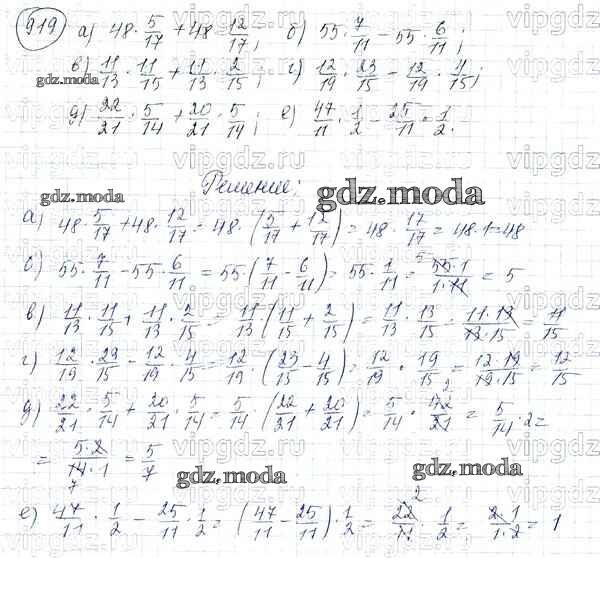 919 а) 48 · 5/17 + 48 · 12/17; б) 55 · 7/11 − 55 · 6/11;
в) 11/13 · 11/15 + 11/13 · 2/15; г) 12/19 · 23/15 − 12/19 · 4/15;
gdz.moda
д) 22/21 · 5/14 + 20/21 · 5/14; е) 47/11 · 1/2 − 25/11 · 1/2.
Решение:
gdz.moda gdz.moda
а) 48 · 5/17 + 48 · 12/17 = 48 · (5/17 + 12/17) = 48 · 17/17 = 48 · 1 = 48
б) 55 · 7/11 − 55 · 6/11 = 55 · (7/11 − 6/11) = 55 · 1/11 = 55 · 1/1 · 11 = 5
в) 11/13 · 11/15 + 11/13 · 2/15 = 11/13 · (11/15 + 2/15) = 11/13 · 13/15 = 11 · 13/13 · 15 = 11/15
г) 12/19 · 23/15 − 12/19 · 4/15 = 12/19 · (23/15 − 4/15) = 12/19 · 19/15 = 12 · 19/19 · 15 = 12/15
д) 22/21 · 5/14 + 20/21 · 5/14 = 5/14 · (22/21 + 20/21) = 5/14 · 42/21 = 5/14 · 2 =
= 5 · 2/14 · 1 = 5/7
gdz.moda gdz.moda
е) 47/11 · 1/2 − 25/11 · 1/2 = (47/11 − 25/11) · 1/2 = 22/11 · 1/2 = 2 · 1/1 · 2 = 1
vipgdz.ru